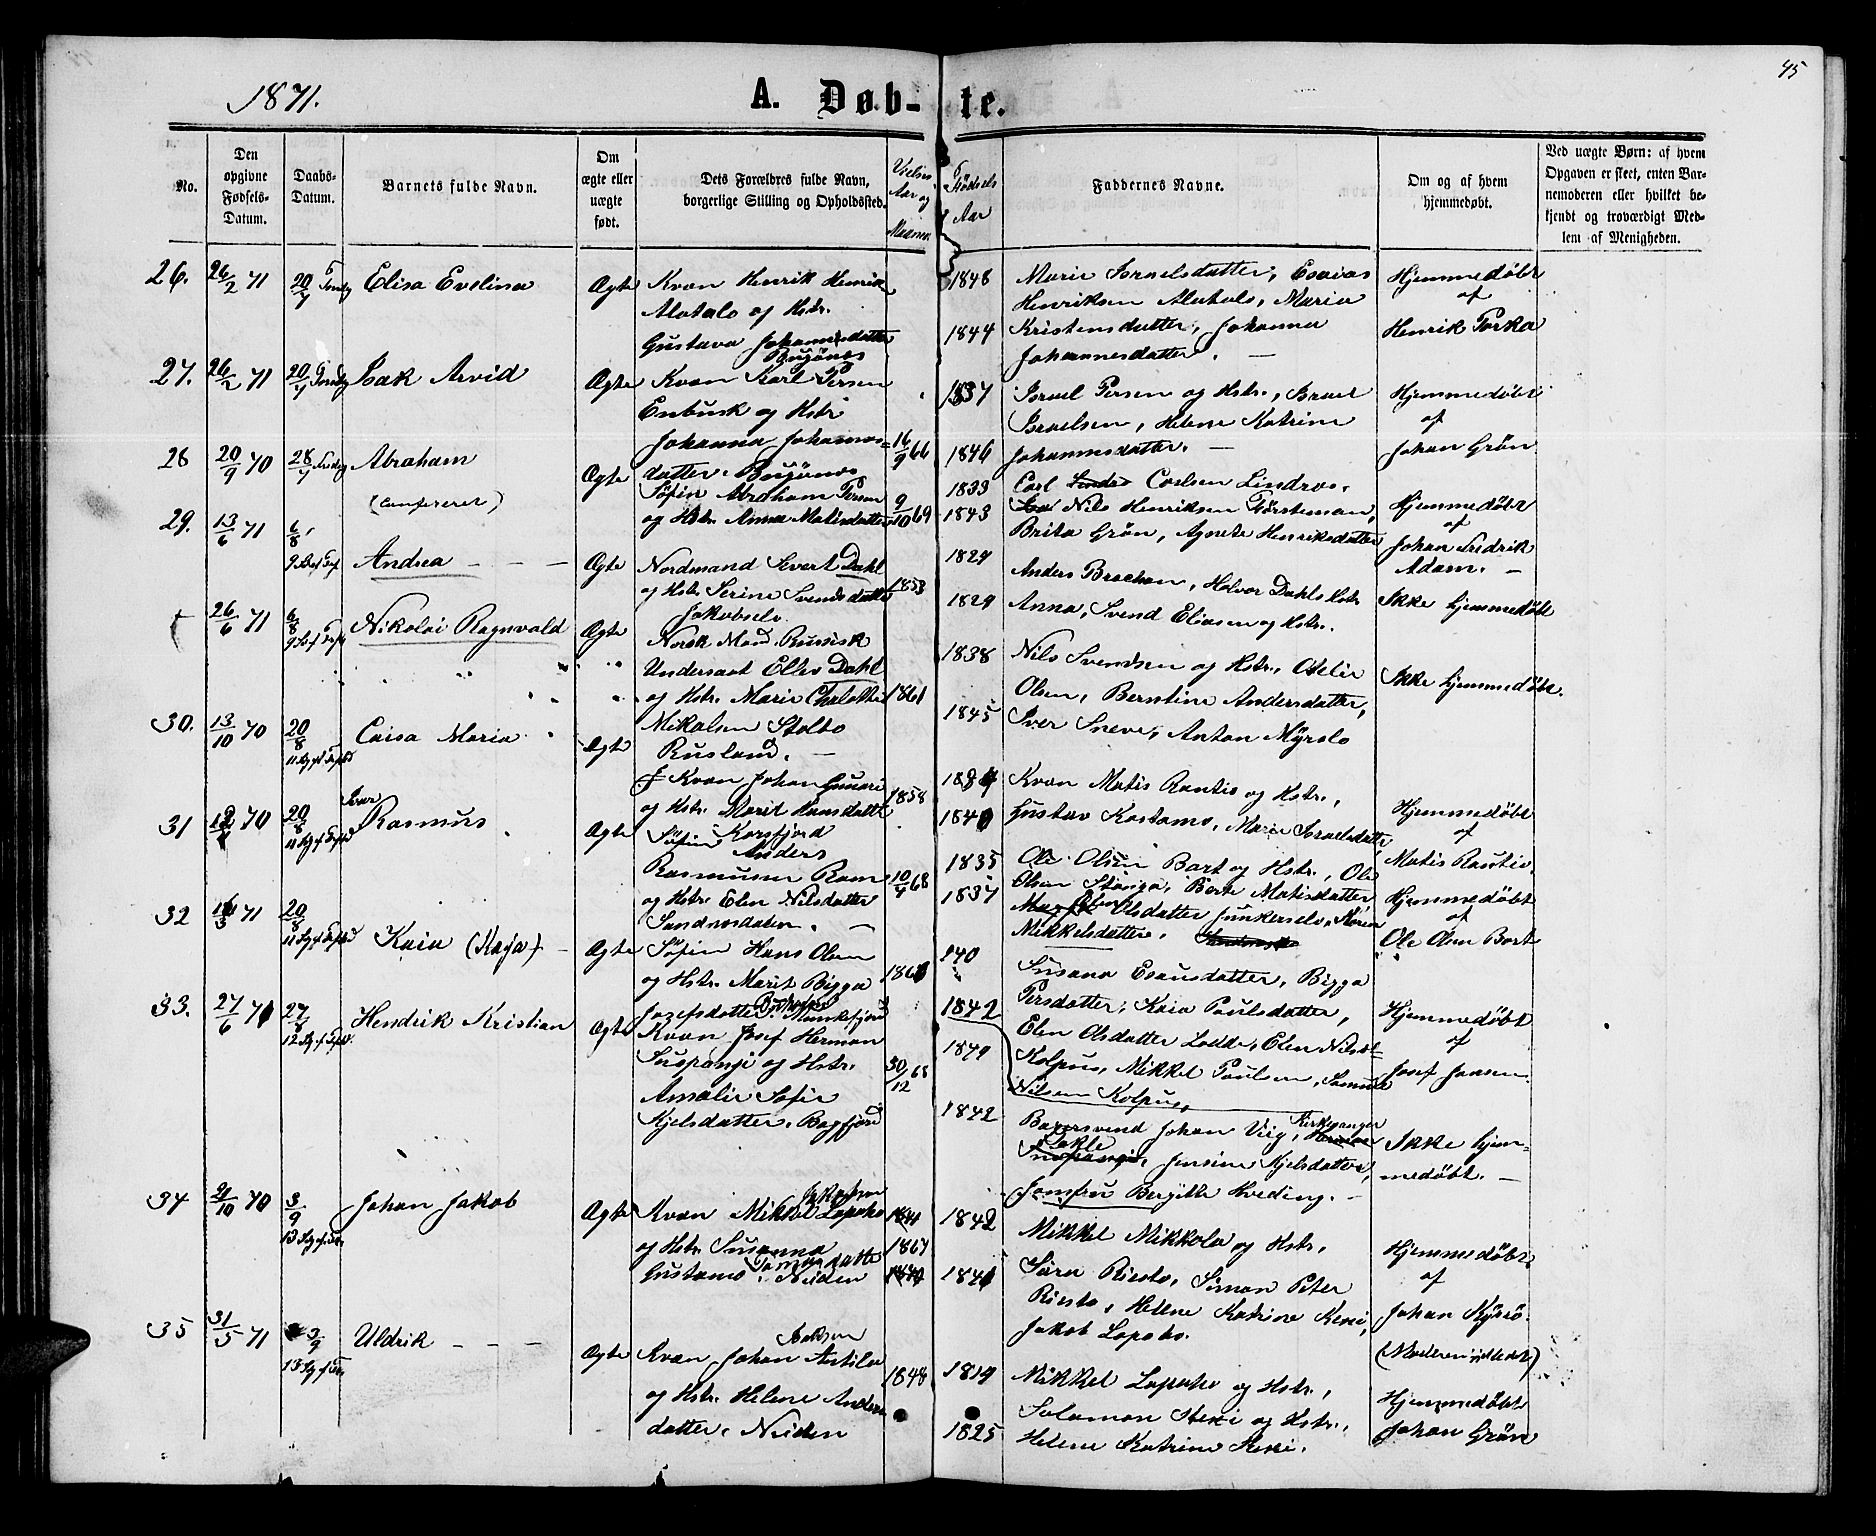 45
1871.
A. Døb- te.
No.
Den opgivne Fødsels-Datum.
Daabs-Datum.
Barnets fulde Navn.
Om ægte eller uægte født.
Dets Forældres fulde Navn, borgerlige Stilling og Opholdssted.
Aar og
Fødsels Aar
Faddernes Navne.
Om og af hvem hjemmedøbt.
Ved uægte Børn: af hvem Opgaven er skeet, enten Barnemoderen eller hvilket bekjendt og troværdigt Medlem af Menigheden.
26. 26/2 71 20/7 Elisa Evelina Ægte
Kvæn Henrik Henrik
Alatalo og Hstr.
Gustava Johannesdatter
Bugønes
1848
1844
Marie Israelsdatter, Esaias
Henriksen Alatalo, Maria
Kristensdatter, Johanna
Johannesdatter.
Hjemmedøbt
af
Henrik Porka
27. 26/2 71 20/7 Isak Arvid Ægte
Kvæn Karl Persen
Enbusk og Hstr
Johanna Johannes-
datter. Bugønes
16/9 66
1837
1846
Israel Persen og Hstr., Israel
Israelsen, Helene Katrine
Johannesdatter.
Hjemmedøbt
af
Johan Grøn
28 20/9 70 28/7 Abraham Ægte
(Confereret)
Søfin Abraham Persen
og Hstr. Anna Matisdatter
9/10 69
1833
1843
Carl Carlsen Lindros,
Nils Henriksen Försteman,
Brita Grøn, Agnete Henriksdatter
Hjemmedøbt
af
Johan Fredrik
Adam.
29. 13/6 71 6/8 Andrea Ægte
Nordmand Sivert Dahl
og Hstr. Serine Svendsdatter
Jakobselv
1853
1829
1829
Anders Brochan, Halvor Dahls Hstr
Anna, Svend Eliasen og Hstr.
Ikke hjemmedøbt
26/6 71 6/8 Nikolai Ragnvald Ægte
Norsk Mand Russisk
Undersaat Ellev Dahl
og Hstr. Marie Chalotte
Mikalsen Stolbo
Rusland.
1861
1838
1845
Nils Svendsen og Hstr., Otelie
Olsen, Berntine Andersdatter,
Iver Sneve, Anton Myrslo
Ikke hjemmedøbt.
30. 13/10 70 20/8 Caisa Maria Ægte
Kvæn Johan
og Hstr. Marit Hansdatter
Korsfjord
1858
1840
Kvæn Matis Rantio og Hstr.,
Gustav Kostamo, Maria Israelsdatter
Hjemmedøbt
af
Matis Rautio.
31 70 20/8 Iver
Rasmus Ægte
Søfin Anders
Rasmusen Ram
og Hstr. Elen Nilsdatter
Sandnesdalen.
10/4 68
1835
1837
Ole Olsen Bart og Hstr., Ole
Olsen Stånga, Berte Matisdatter
Olsdatter Junkerselv, Maren
Mikkelsdatter.
Hjemmedøbt
af
Ole Olsen Bort
32 71 20/8 Kaia (Kaja) Ægte
Søfin Hans Olsen
og Hstr. Marit Bigga
Josefsdatter. Munkefjord
840
1842
Susana Esausdatter, Bigga
Persdatter, Kaia Paulsdatter,
Elen Olsdatter Lodde, Elen Nilsdt
Kolpus, Mikkel Paulsen, Samuel
Nilsen Kolpus,
Hjemmedøbt
af
Josef Jansen.
33. 27/6 71 27/8 Hendrik Kristian Ægte
Kvæn Josef Herman
Suspangi og Hstr.
Amalie Sofie
Kjelsdatter. Bøgfjord
30/12 68
1849
1842
Bagersvend Johan Viig, Kirkesanger
Takle, Jensine Kjelsdatter,
Jomfru Bergitte Hveding.
Ikke hjem-
medøbt.
34 21/10 70 3/9 Johan Jakob Ægte
Kvæn Mikkel Lapoho
og Hstr. Susanna
Gustava datter
Neiden
1867
1842
1841
Mikkel Mikkola og Hstr.
Sara Riesto, Simon Peter
Riesto, Helene Katrine Keski,
Jakob Lapoho.
Hjemmedøbt
af
Johan Kyrö.
35 31/5 71 3/9 Uldrik Ægte
Isaksen
Kvæn Johan Antila
og Hstr. Helene Anders
datter. Neiden
1848
1819
1825
Mikkel Lapoho og Hstr.,
Salamon Keski og Hstr.,
Helene Katrine Keski.
Hjemmedøbt
Johan Grøn